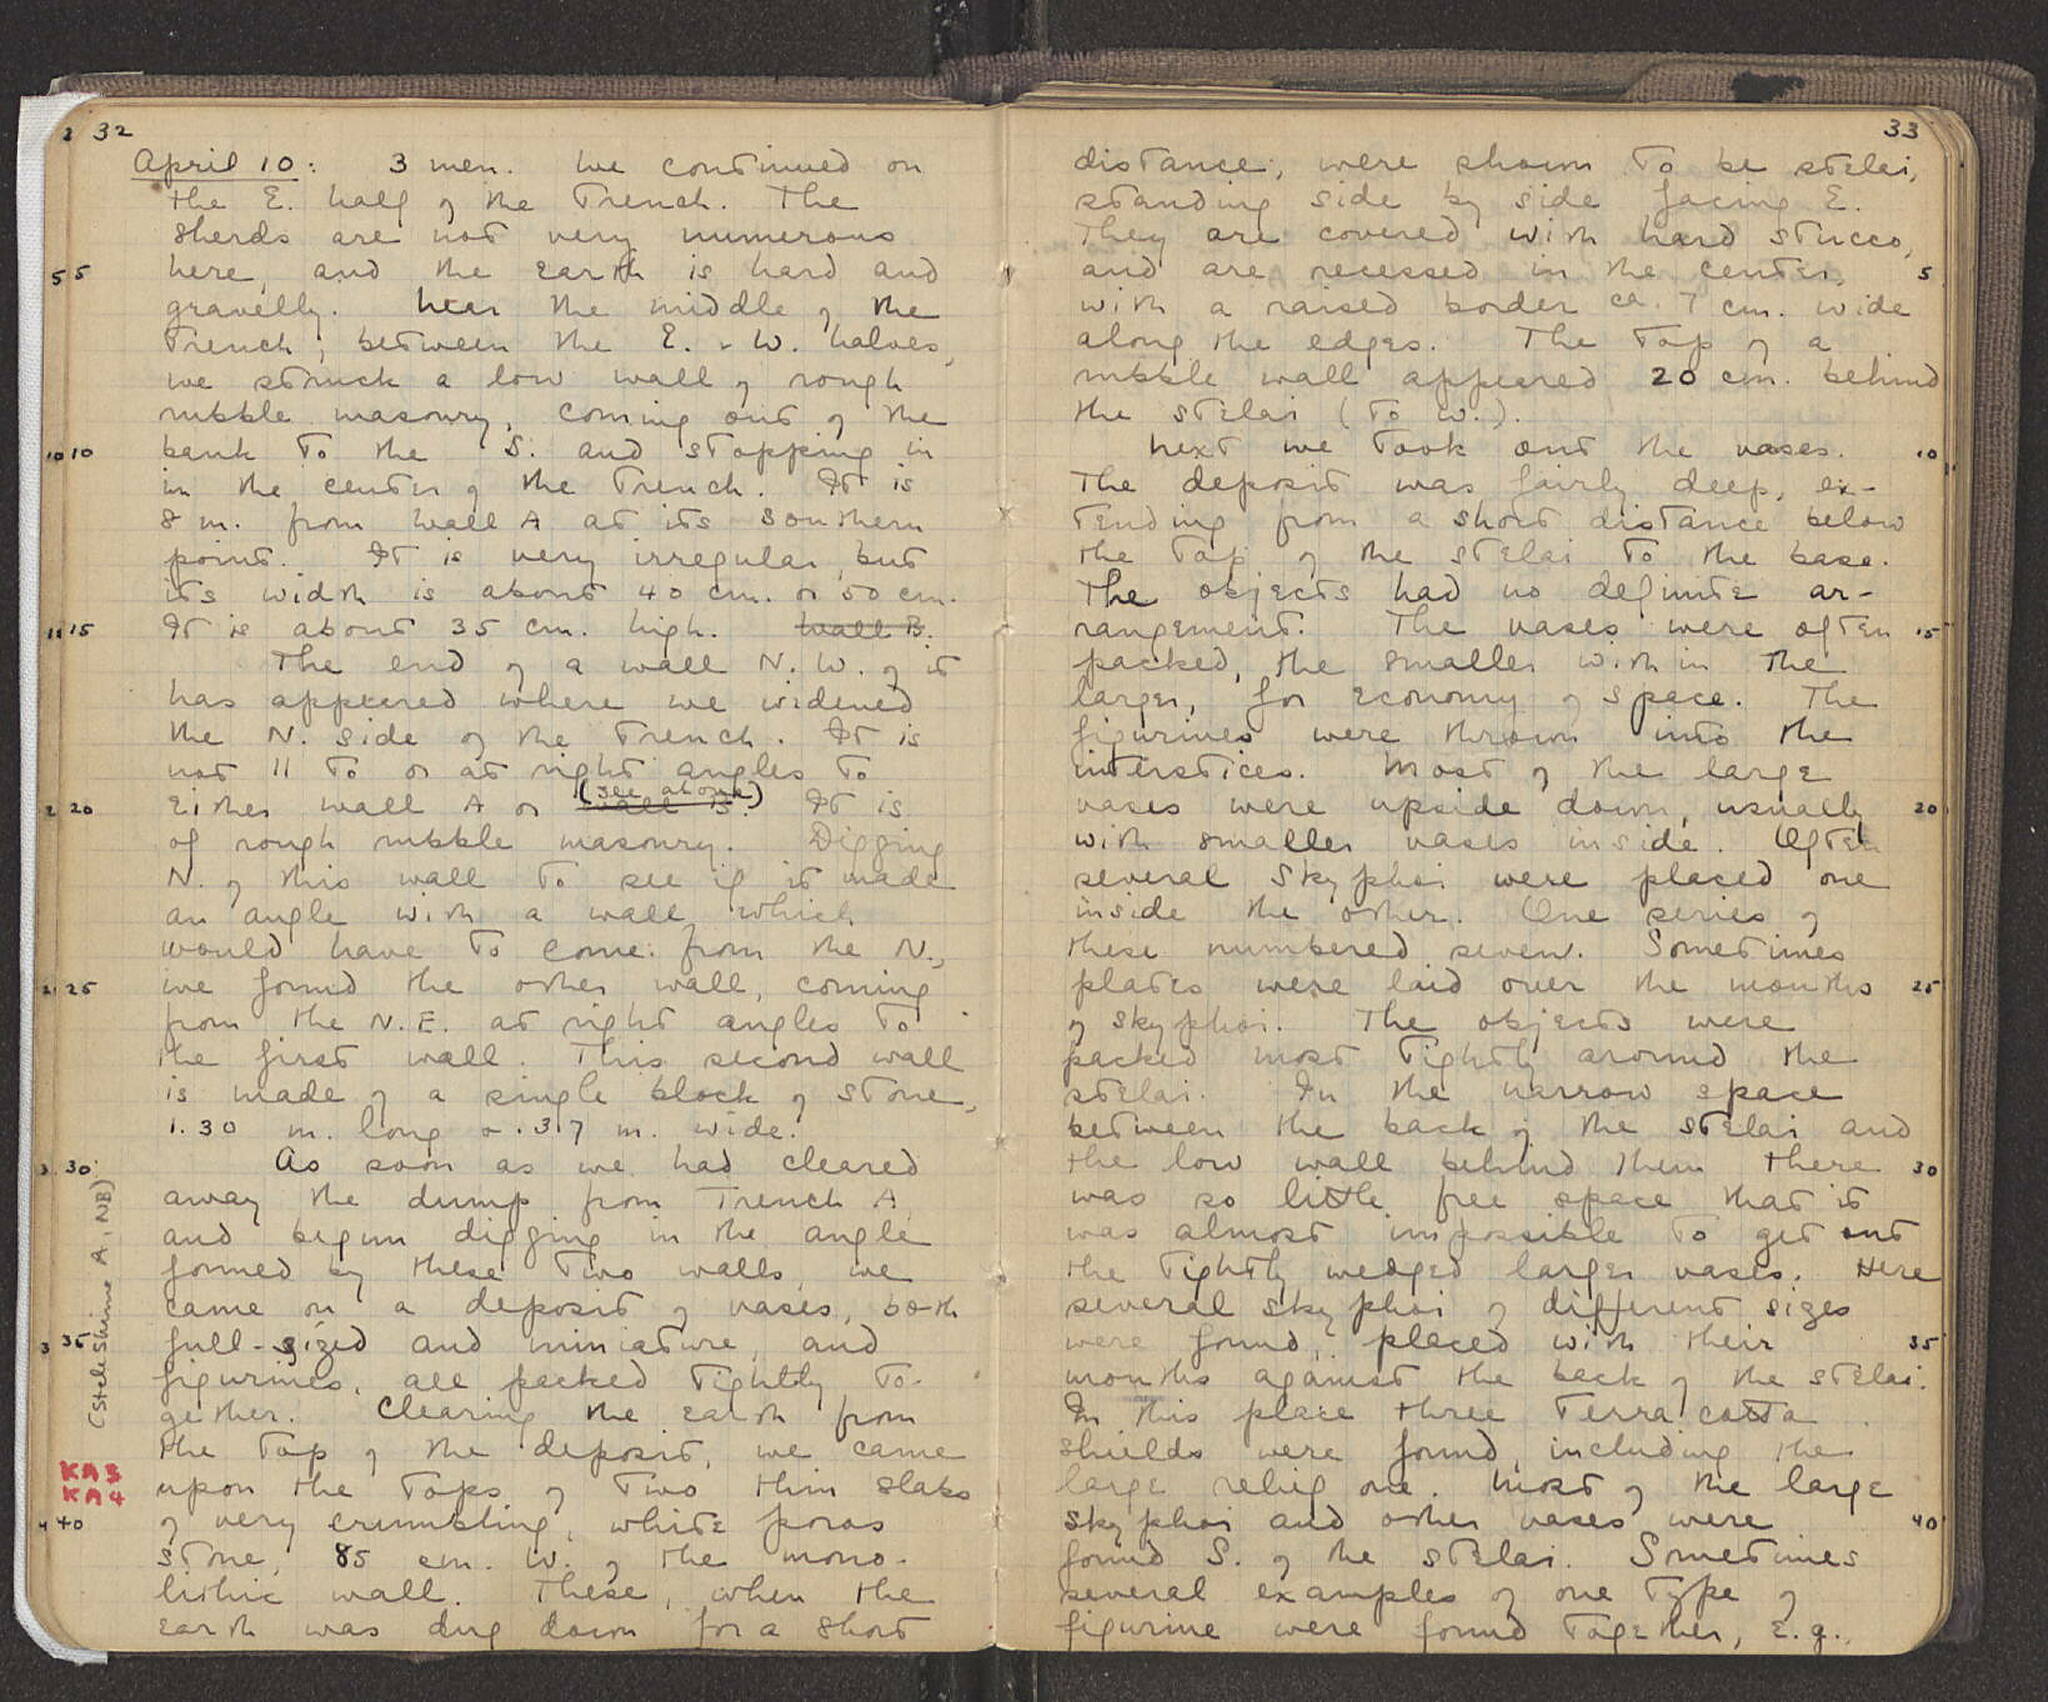 32
April 10: 3 men. We continued on
the E. half of the Trench. The
sherds are not very numerous
5 here, and the earth is hard and
gravelly. Near the middle of the
Trench, between the E. & W. halves,
we struck a low wall of rough
rubble masonry, coming out of the
10 bank to the S. and stopping in
in the center of the Trench. It is
8 m. from Wall A at its southern
point. It is very irregular, but
its width is about 40 cm. or 50 cm.
15 It is about 35 cm. high. Wall B.
The end of a wall N.W. of it
has appeared where we widened
the N. side of the Trench. It is
not || to or at right angles to
(see above)
20 either wall A or wall B. It is
of rough rubble masonry. Digging
N. of this wall to see if it made
an angle with a wall, which
would have to come from the N.,
25 we found the other wall, coming
from the N.E. at right angles to
the first wall. This second wall
is made of a single block of stone,
1.30 m. long & .37 m. wide.
30 As soon as we had cleared
away the dump from Trench A,
and begun digging in the angle
formed by these two walls, we
came on a deposit of vases, both
35 full-sized and miniature, and
figurines, all packed tightly to-
gether. Clearing the earth from
the top of the deposit, we came
upon the tops of two thin slabs
40 of very crumbling, white poros
stone, 85 cm. W. of the mono-
lithic wall. These, when the
earth was dug down for a short
(Stele Shrine A, NB)
KA3
KA4
33
distance, were shown to be stelai,
standing side by side facing E.
They are covered with hard stucco,
and are recessed in the center, 5
with a raised border ca. 7 cm. wide
along the edges. The top of a
rubble wall appeared 20 cm. behind
the stelai (to W.).
Next we took out the vases. 10
The deposit was fairly deep, ex-
tending from a short distance below
the top of the stelai to the base.
The objects had no definite ar-
rangement. The vases were often 15
packed, the smaller within the
larger, for economy of space. The
figurines were thrown into the
interstices. Most of the large
vases were upside down, usually 20
with smaller vases inside. Often
several skyphoi were placed one
inside the other. One series of
these numbered seven. Sometimes
plates were laid over the mouths 25
of skyphoi. The objects were
packed most tightly around the
stelai. In the narrow space
between the back of the stelai and
the low wall behind them there 30
was so little free space that it
was almost impossible to get out
the tightly wedged larger vases. Here
several skyphoi of different sizes
were found, placed with their 35
mouths against the back of the stelai.
In this place three terra cotta
shields were found, including the
large relief one. Most of the large
skyphoi and other vases were 40
found S. of the stelai. Sometimes
several examples of one type of
figurine were found together, e.g.,